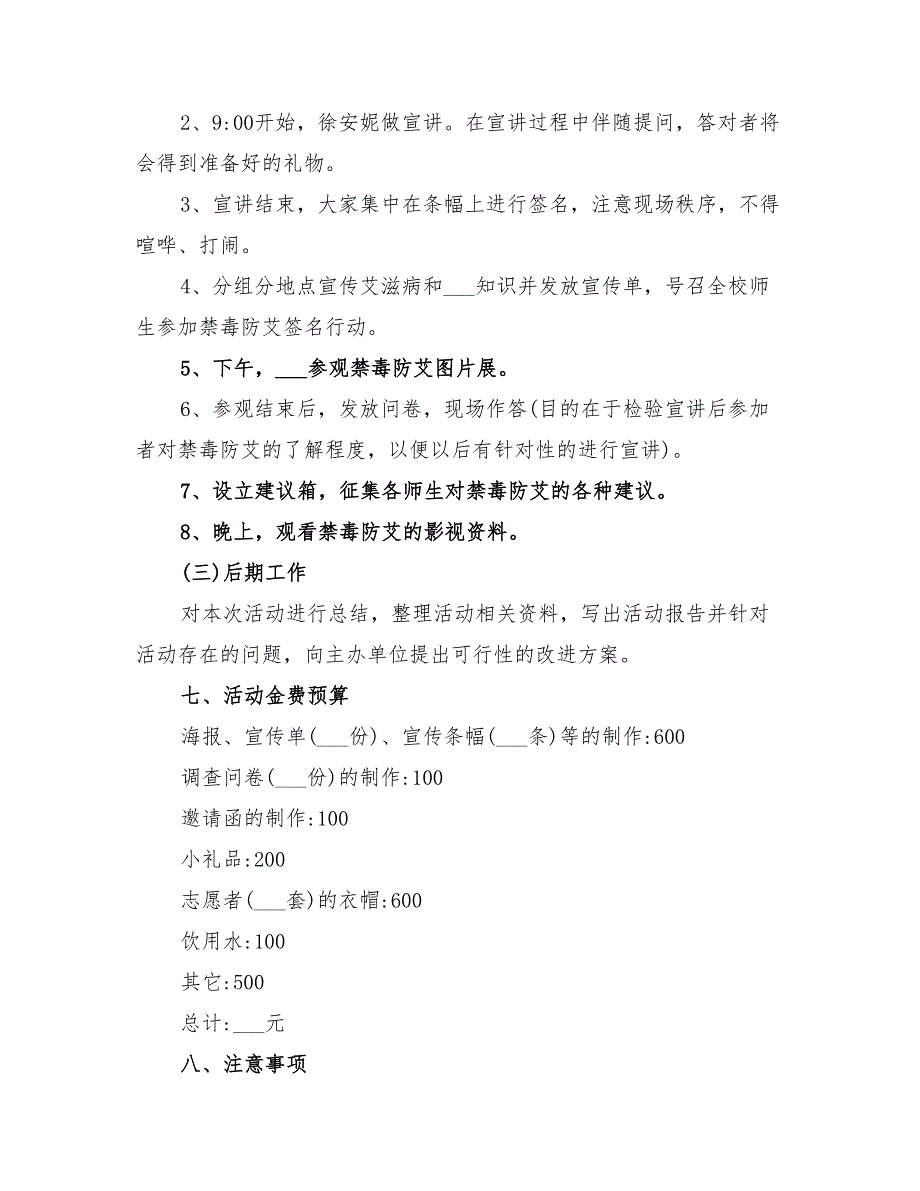 2、9:00开始，徐安妮做宣讲。在宣讲过程中伴随提问，答对者将
会得到准备好的礼物。
3、宣讲结束，大家集中在条幅上进行签名，注意现场秩序，不得
喧哗、打闹。
4、分组分地点宣传艾滋病和___知识并发放宣传单，号召全校师
生参加禁毒防艾签名行动。
5、下午，___参观禁毒防艾图片展。
6、参观结束后，发放问卷，现场作答(目的在于检验宣讲后参加
者对禁毒防艾的了解程度，以便以后有针对性的进行宣讲)。
7、设立建议箱，征集各师生对禁毒防艾的各种建议。
8、晚上，观看禁毒防艾的影视资料。
(三)后期工作
对本次活动进行总结，整理活动相关资料，写出活动报告并针对
活动存在的问题，向主办单位提出可行性的改进方案。
七、活动金费预算
海报、宣传单(___份)、宣传条幅(___条)等的制作:600
调查问卷(___份)的制作:100
邀请函的制作:100
小礼品:200
志愿者(___套)的衣帽:600
饮用水:100
其它:500
总计:___元
八、注意事项